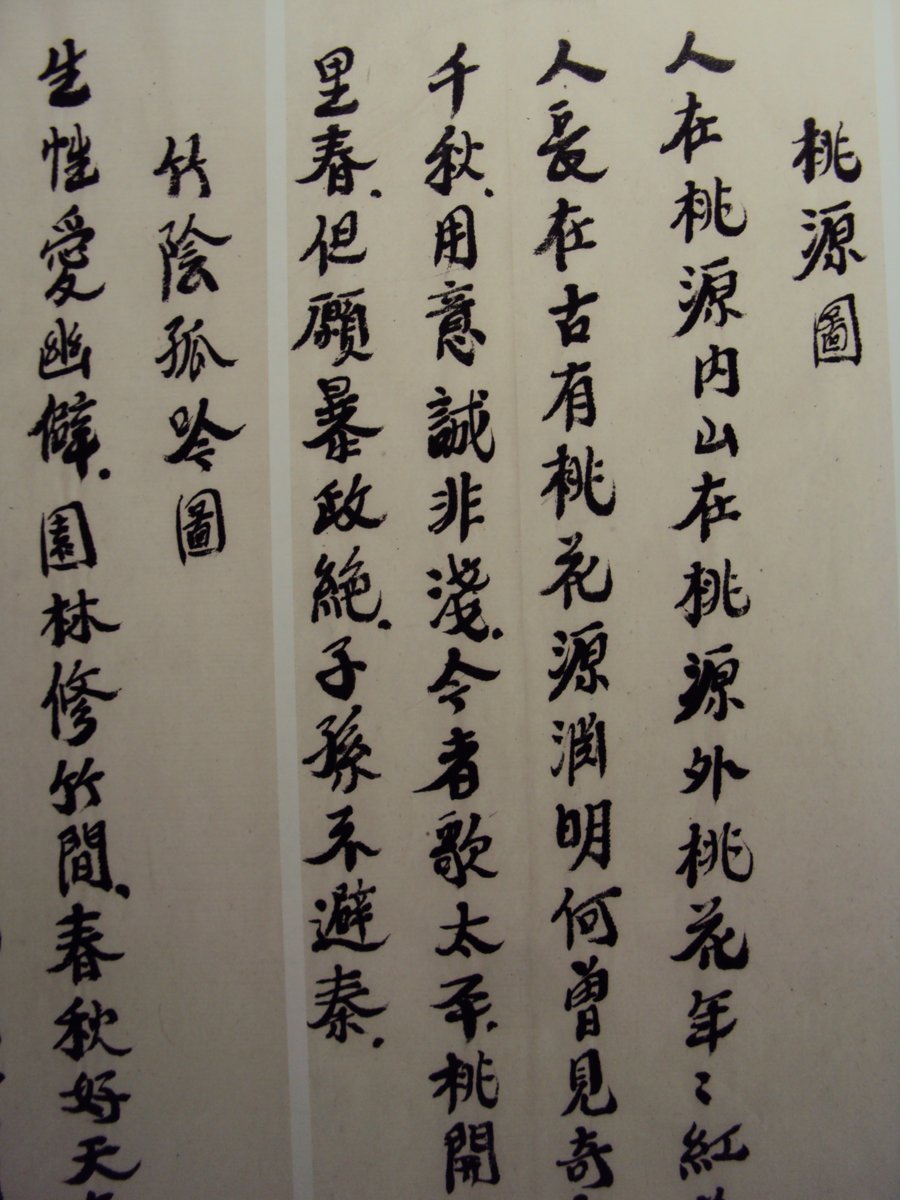 桃源圖
人在桃源內山在桃源外桃花年〻紅
人長在古有桃花源淵明何曾見奇
千秋.用意誠非淺.今者歌太平.桃開
里春.但願暴政絕.子孫不避秦.
竹陰孤吟圖
生性愛幽僻.園林修竹間.春秋好天